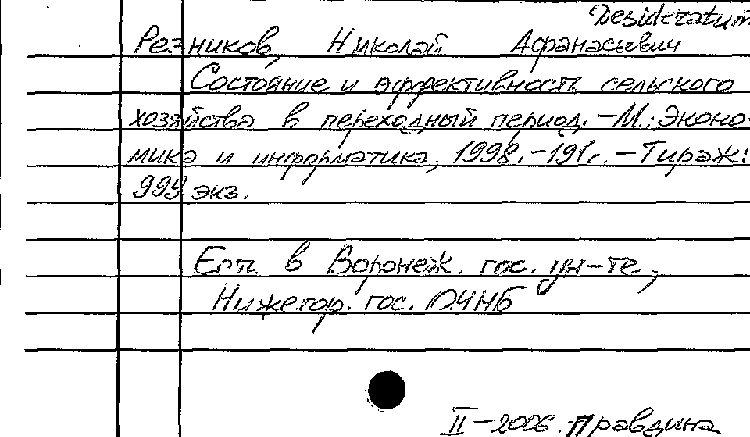 Desideratum
Резников, Николай Афанасьевич
Состояние и эффективность сельского
хозяйства в переходный период. - М.: Эконо-
мика и информатика, 1998. - 191с. - Тираж:
999 экз.
Есть в Воронеж. гос. ун-те,
Нижегор. гос. ОУНБ
II - 2006. Правдина